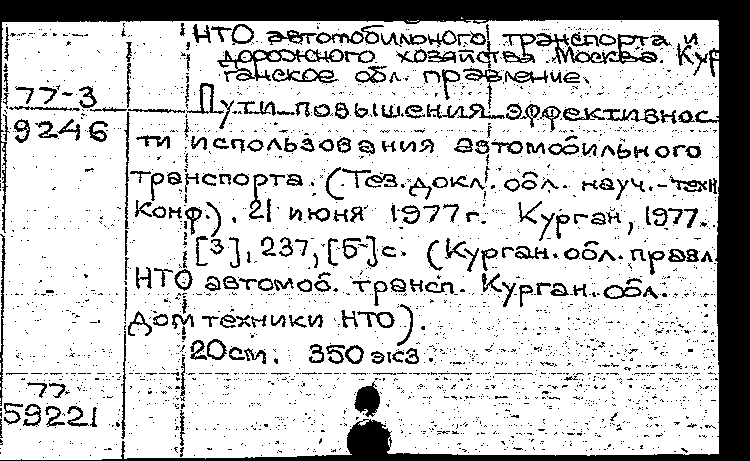 НТО автомобильного транспорта и
дорожного хозяйства Москва. Кур
ганское обл. правление.
77-3
Пути повышения эффективнос
9246
ти использования автомобильного
транспорта. (Тез. докл. обл. науч.-техн
Конф.). 21 июня 1977г. Курган, 1977.
[3], 237, [5]с. (Курган. обл. правл.
НТО автомоб. трансп. Курган. обл.
дом техники НТО).
20см. 350 экз.
77
59221